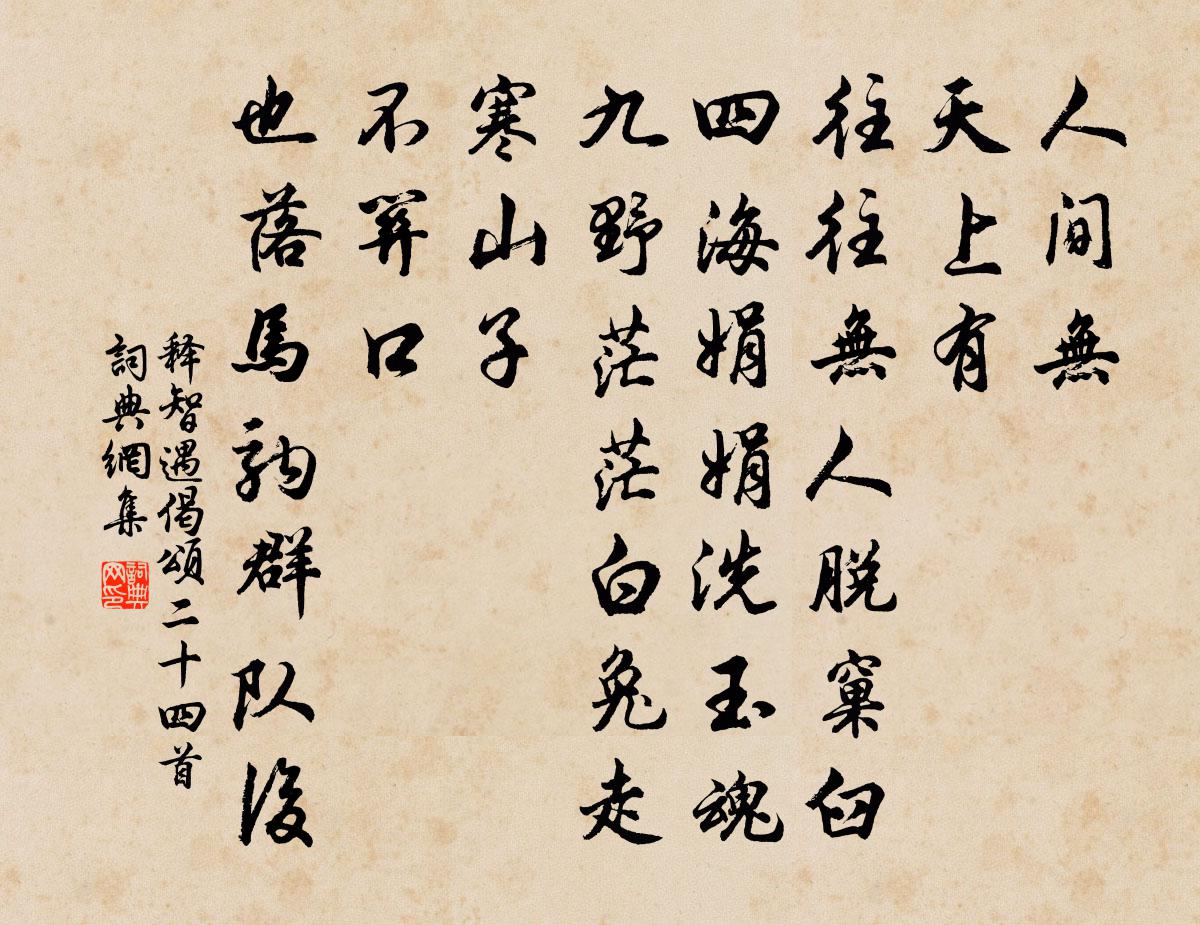 人間無
天上有
往往無人脱窠臼
四海娟娟洗玉魂
九野茫茫白兔走
寒山子
不開口
也落馬駒群队後
释智遇偈頌二十四首
詞典網集
詞典网印